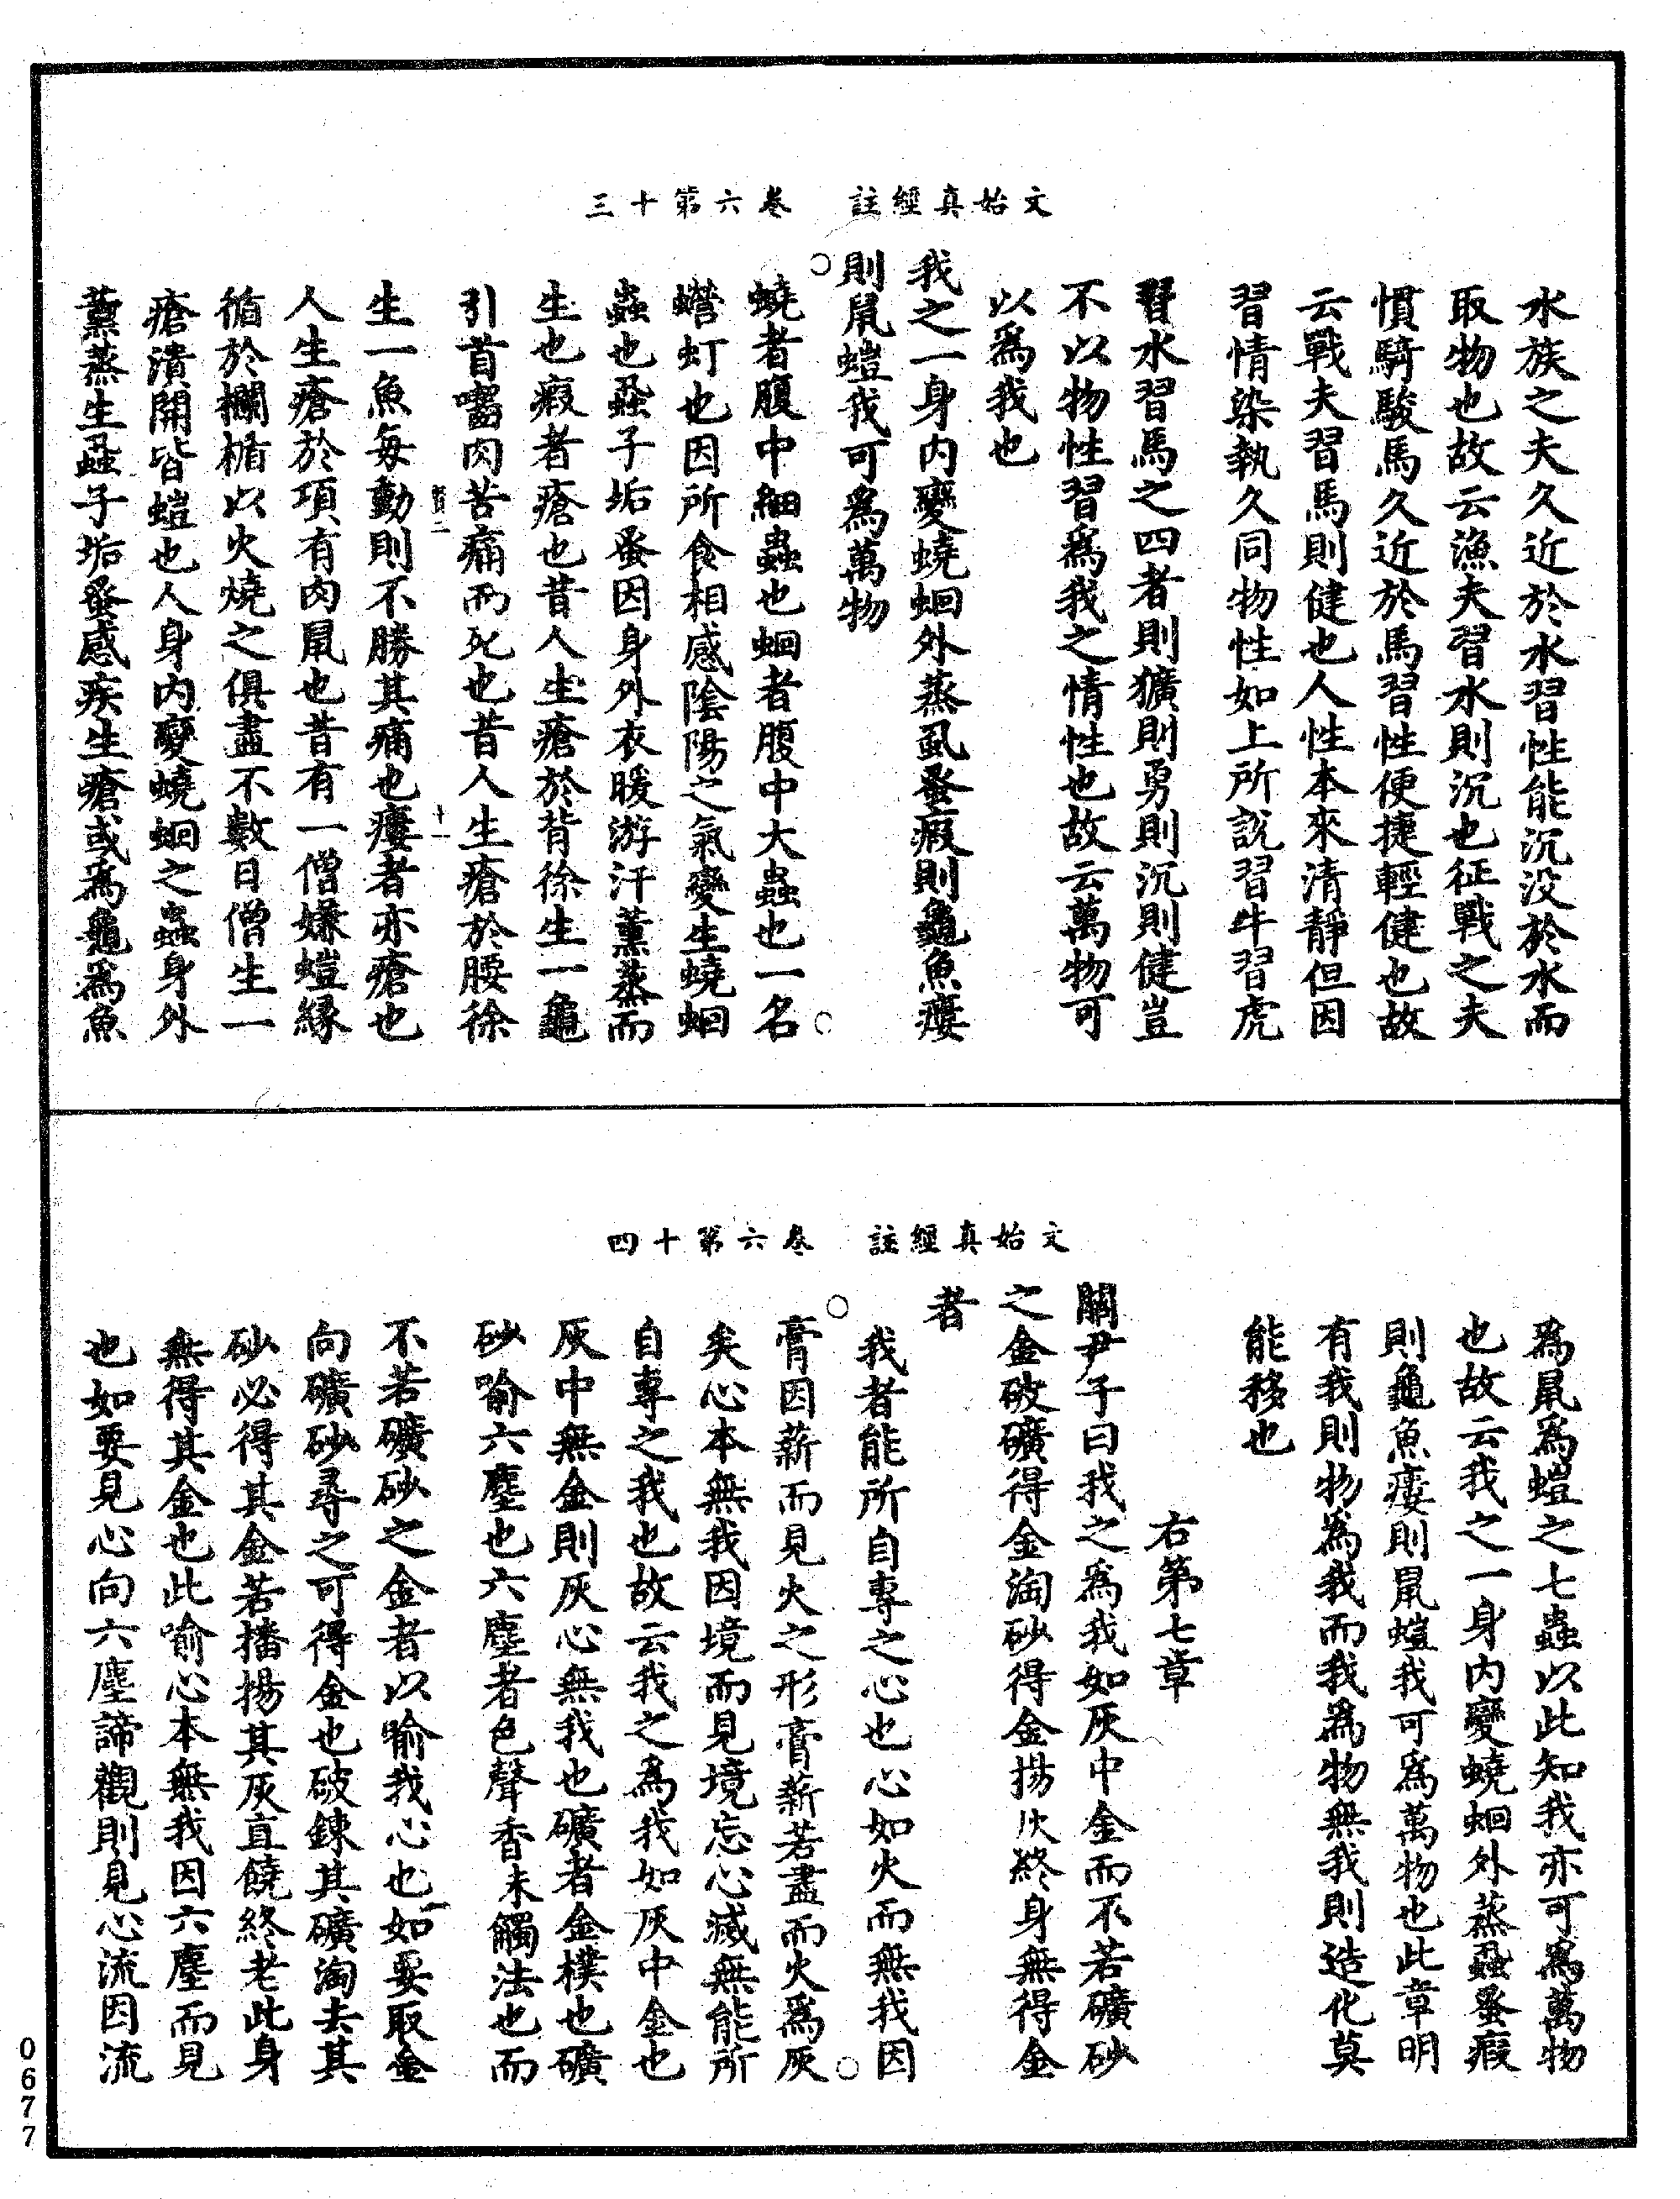 文始真經註　卷六第十三
水族之夫久近於水習性能沉没於水而
取物也故云漁夫習水則沉也征戰之夫
慣騎駿馬久近於馬習性便捷輕健也故
云戰夫習馬則健也人性本來清靜但因
習情染執久同物性如上所說習牛習虎
習水習馬之四者則獷則勇則沉則健豈
不以物性習爲我之情性也故云萬物可
以爲我也
我之一身内變蟯蛔外蒸虱蚤瘕則龜魚瘻
則鼠螘我可爲萬物
蟯者腹中細蟲也蛔者腹中大蟲也一名
蟮虰也因所食相感陰陽之氣變生蟯蛔
蟲也蝨子垢蚤因身外衣暖游汗薰蒸而
生也瘕者瘡也昔人生瘡於背徐生一龜
引首囓肉苦痛而死也昔人生瘡於腰徐
賀二　十一
生一魚每動則不勝其痛也瘻者亦瘡也
人生瘡於項有肉鼠也昔有一僧嫌螘緣
循於欄楯以火燒之俱盡不數日僧生一
瘡潰開皆螘也人身内變蟯蛔之蟲身外
薰蒸生蝨子垢蚤感疾生瘡或爲龜爲魚
文始真經註　卷六第十四
爲鼠爲螘之七蟲以此知我亦可爲萬物
也故云我之一身内變蟯蛔外蒸蝨蚤瘕
則龜魚瘻則鼠螘我可爲萬物也此章明
有我則物爲我而我爲物無我則造化莫
能移也
右第七章
關尹子曰我之爲我如灰中金而不若礦砂
之金破礦得金淘砂得金揚灰終身無得金
者
我者能所自專之心也心如火而無我因
膏因薪而見火之形膏薪若盡而火爲灰
矣心本無我因境而見境忘心滅無能所
自專之我也故云我之爲我如灰中金也
灰中無金則灰心無我也礦者金樸也礦
砂喻六塵也六塵者色聲香未觸法也而
不若礦砂之金者以喻我心也如要取金
向礦砂尋之可得金也破鍊其礦淘去其
砂必得其金若播揚其灰直饒終老此身
無得其金也此喻心本無我因六塵而見
也如要見心向六塵諦觀則見心流因流
0677